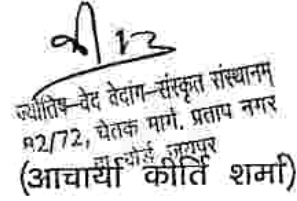 ज्योतिष-वेद वेदांग-संस्कृत संस्थानम्
82/72, चेतक मार्ग, प्रताप नगर
बोर्ड जयपुर
(आचार्या कीर्ति शर्मा)